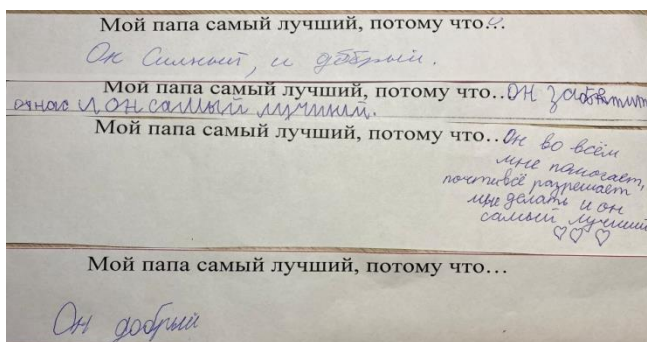 Мой папа самый лучший, потому что...
Он Силный, и добрый.
Мой папа самый лучший, потому что...Он заботит
онас и он самый лучший.
Мой папа самый лучший, потому что...Он во всём
мне помогает,
почти всё разрешает
мне делать и он
самый лучший
♡♡♡
Мой папа самый лучший, потому что...
Он добрый